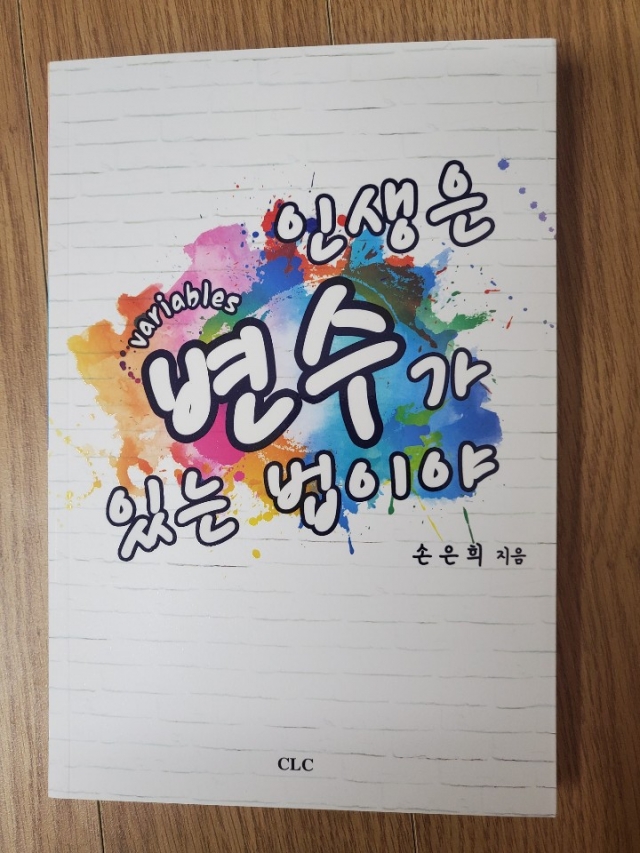 인생은
variables
변수가
있는 법이야
손은희 지음
CLC